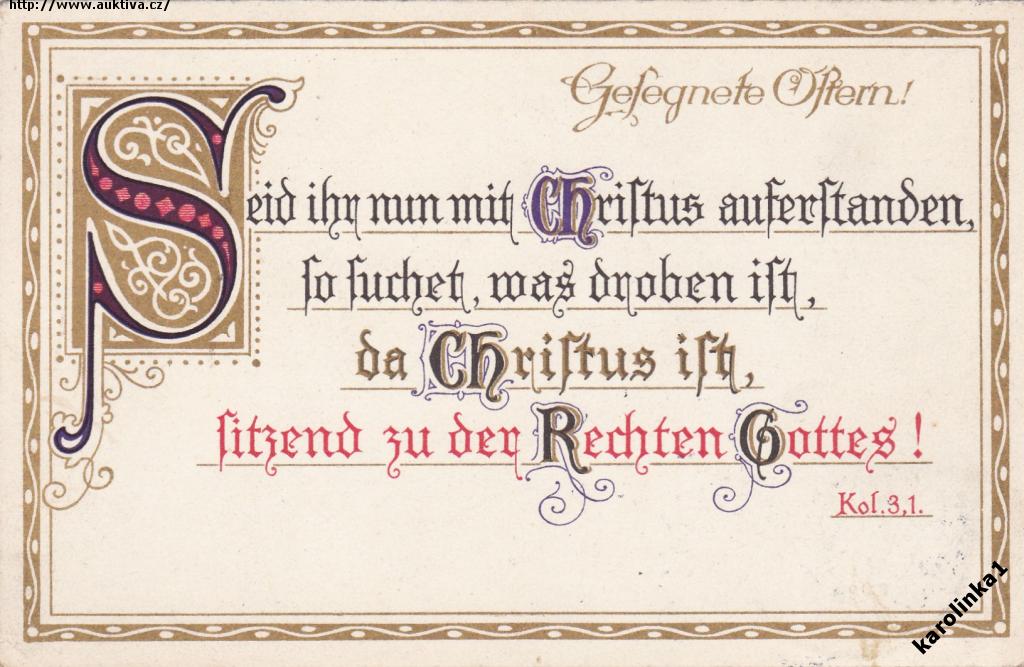 http://www.auktiva.cz/
Geſegnete Oſtern!
Seid ihr nun mit Chriſtus auferſtanden,
ſo ſuchet, was droben iſt,
da Chriſtus iſt,
ſitzend zu der Rechten Gottes!
Kol. 3,1.
karolinka1